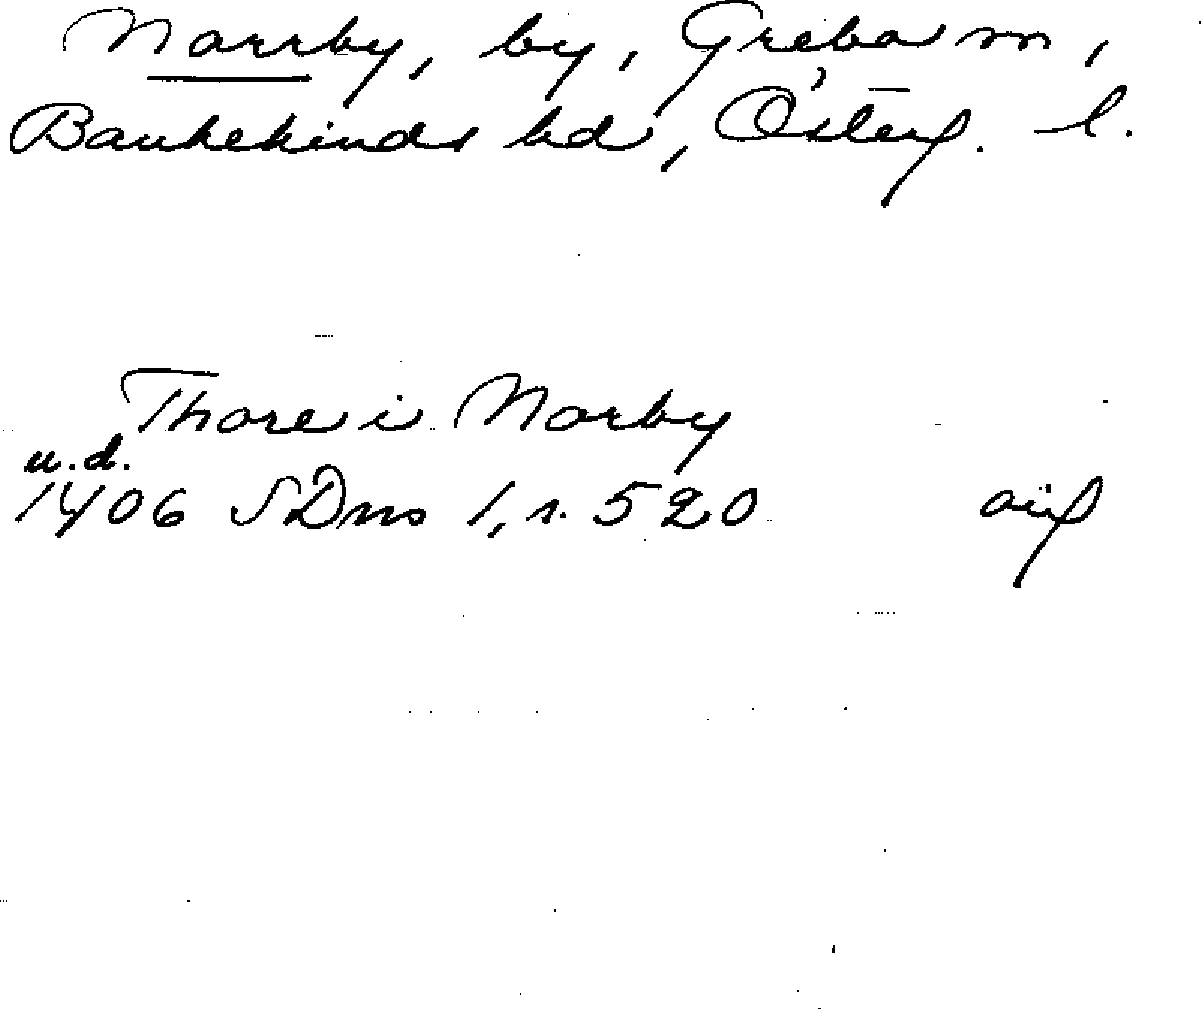 Norrby, by, Grebo sn,
Bankekinds hd, Österg. l.
Thore i Norby
u.d.
1406 SDns 1, s. 520